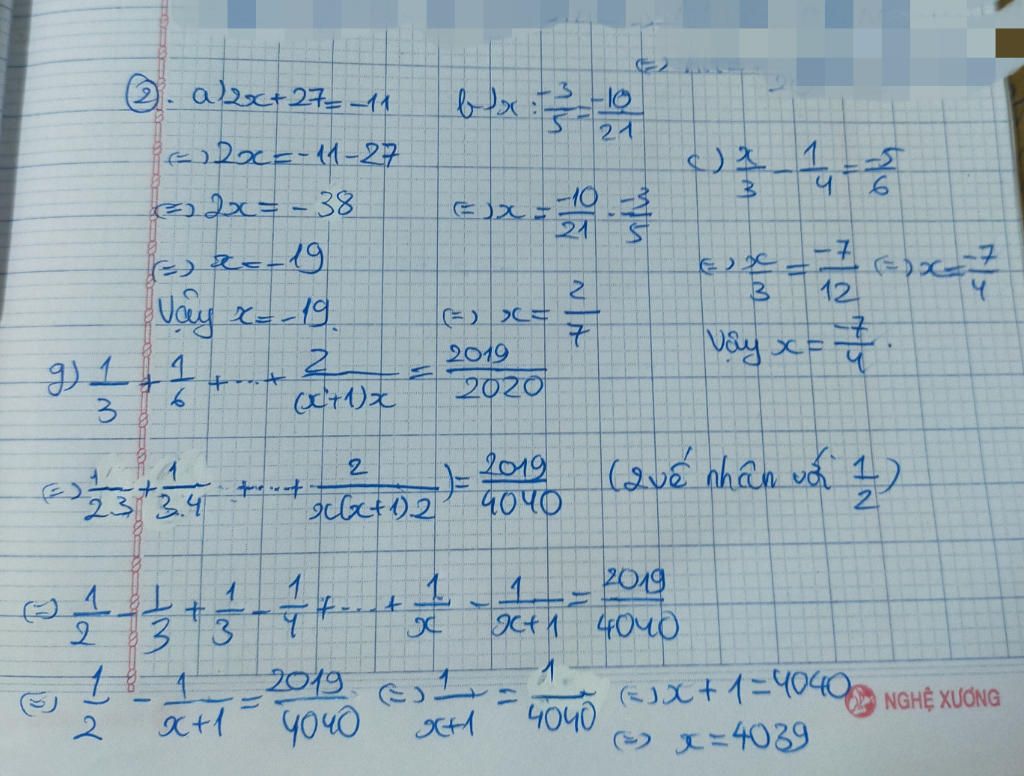 (=)
②. a) 2x + 27 = -11
(=) 2x = -11 - 27
(=) 2x = -38
(=) x = -19
Vậy x = -19.
b) x : -3/5 = -10/21
(=) x = -10/21 . -3/5
(=) x = 2/7
c) x/3 - 1/4 = -5/6
(=) x/3 = -7/12 (=) x = -7/4
Vậy x = -7/4.
g) 1/3 + 1/6 + ... + 2/(x+1)x = 2019/2020
(=) 1/2.3 + 1/3.4 + ... + 2/x(x+1).2) = 2019/4040 (2 vế nhân với 1/2)
(=) 1/2 - 1/3 + 1/3 - 1/4 + ... + 1/x - 1/x+1 = 2019/4040
(=) 1/2 - 1/x+1 = 2019/4040 (=) 1/x+1 = 1/4040 (=) x + 1 = 4040
(=) x = 4039
NGHỆ XƯƠNG